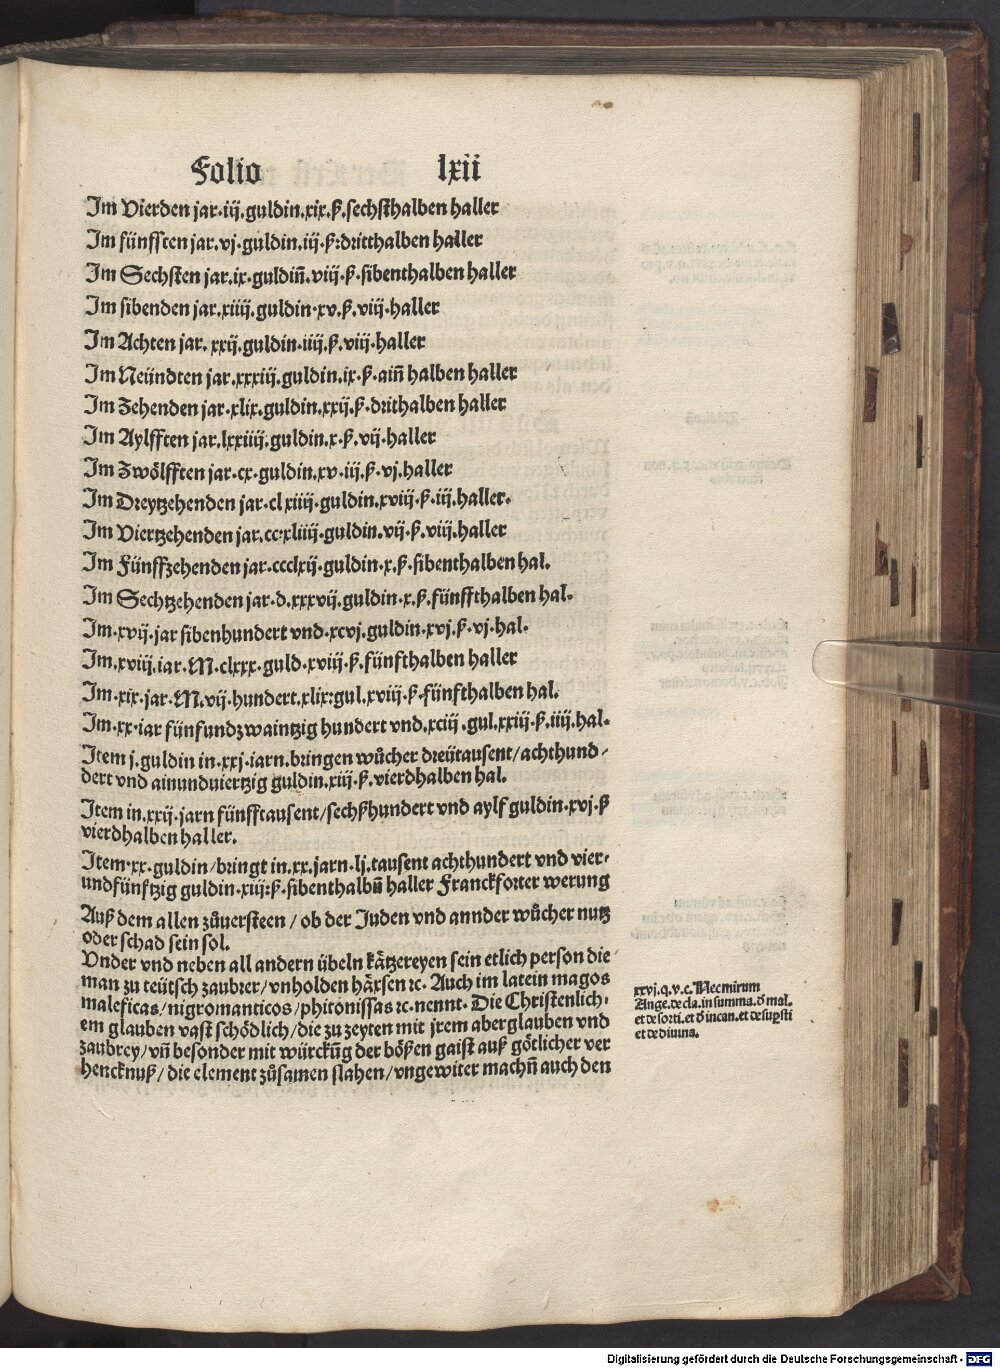 Folio lxii
Im Vierden jar.iij.guldin.xix.ß.sechsthalben haller
Im fünfften jar.vj.guldin.iij.ß:dritthalben haller
Im Sechsten jar.ix.guldiñ.viij.ß.sibenthalben haller
Im sibenden jar.xiiij.guldin.xv.ß.viij.haller
Im Achten jar.xxij.guldin.iiij.ß.viij.haller
Im Neündten jar.xxxiij.guldin.ix.ß.aiñ halben haller
Im Zehenden jar.xlix.guldin.xxij.ß.drithalben haller
Im Aylfften jar.lxxiiij.guldin.x.ß.vij.haller
Im Zwölfften jar.cx.guldin.xv.iij.ß.vj.haller
Im Dreytzehenden jar.clxiiij.guldin.xviij.ß.iij.haller.
Im Viertzehenden jar.cc.xliiij.guldin.vij.ß.viij.haller
Im Fünffzehenden jar.ccclxij.guldin.x.ß.sibenthalben hal.
Im Sechtzehenden jar.d.xxxvij.guldin.x.ß.fünffthalben hal.
Im.xvij.jar sibenhundert vnd.xcvj.guldin.xvj.ß.vj.hal.
Im.xviij.iar.M.clxxx.guld.xviij.ß.fünfthalben haller
Im.xix.jar.M.vij.hundert.xlix:gul.xviij.ß.fünfthalben hal.
Im.xx.iar fünfundzwaintzig hundert vnd.xciij.gul.xxiij.ß.iiij.hal.
Item j.guldin in.xxj.iarn.bringen wůcher dreütausent/achthund/
dert vnd ainundviertzig guldin.xiij.ß.vierdhalben hal.
Item in.xxij.jarn fünfftausent/sechßhundert vnd aylf guldin.xvj.ß
vierdhalben haller.
Item.xx.guldin/bringt in.xx.jarn.lj.tausent achthundert vnd vier-
undfünftzig guldin.xiij:ß.sibenthalbñ haller Franckforter werung
Auß dem allen zůuersteen/ob der Juden vnd annder wůcher nutz
oder schad sein sol.
Vnder vnd neben all andern übeln kätzereyen sein etlich person die
man zu teütsch zaubrer/vnholden häxsen ꝛc. Auch im latein magos
maleficas/nigromanticos/phitonissas ꝛc.nennt. Die Christenlich-
em glauben vast schödlich/die zu zeyten mit jrem aberglauben vnd
zaubrey/vñ besonder mit würckũg der bößen gaist auß götlicher ver
hencknuß/die element zůsamen slahen/vngewiter machñ auch den
xxvj.q.v.c.Nec mirum
Ange.de cla.in summa.d̄ mal.
et de sorti.et d̄ incan.et de suꝑsti
et de diuina.
Digitalisierung gefördert durch die Deutsche Forschungsgemeinschaft - DFG